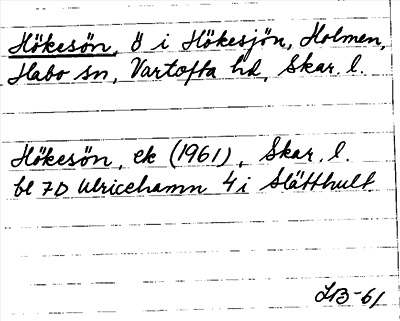 Hökesön, ö i Hökesjön, Holmen,
Habo sn, Vartofta hd, Skar. l.
Hökesön, ek (1961), Skar. l.
bl 7D Ulricehamn 4 i Slätthult.
LB-61